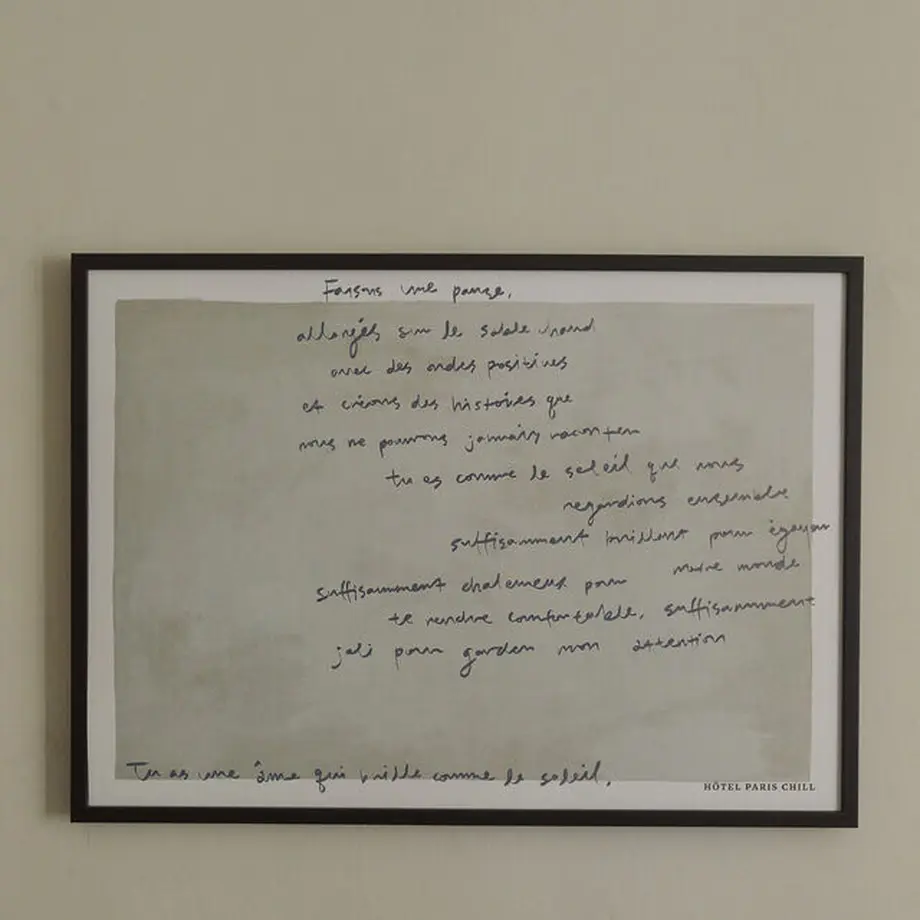 Faisons une pause,
allongés sur le sable chaud
avec des ondes positives
et créons des histoires que
nous ne pouvons jamais raconter
tu es comme le soleil que nous
regardions ensemble
suffisamment brillant pour égayer
notre monde
suffisamment chaleureux pour
te rendre confortable, suffisamment
joli pour garder mon attention
Tu as une âme qui brille comme le soleil.
HÔTEL PARIS CHILL